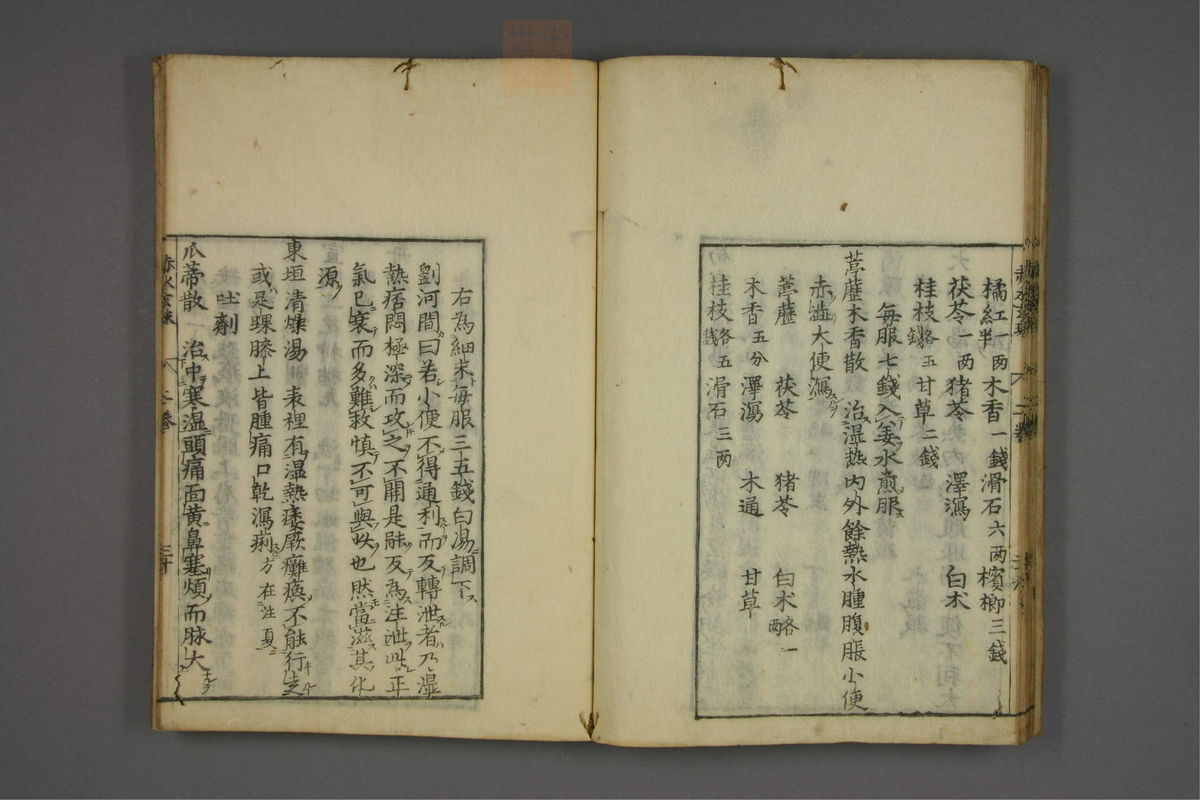 橘紅一両半木香一錢滑石六両檳榔三錢
茯苓一両猪苓 澤瀉 白朮
桂枝各五錢甘草二錢
毎服七錢入姜水煎服ス
葶藶木香散 治湿热内外餘熱水腫腹脹小便
赤澁大便瀉
葶藶 茯苓 猪苓 白朮各一両
木香五分 澤瀉 木通 甘草
桂枝各五錢滑石三両
右為細末毎服三五錢白湯調下ス
劉河間曰若小便不得通利而反轉泄者乃湿
熱痞悶極深而攻之不開是能反為注泄此正
氣已衰而多難救慎不可與攻也然當滋其化
源
東垣清燥湯 表裡有湿熱痿厥癱瘓不能行走
或足踝膝上皆腫痛口乾瀉痢方在注夏
吐劑
瓜蒂散 治中寒湿頭痛面黄鼻塞煩而脉大